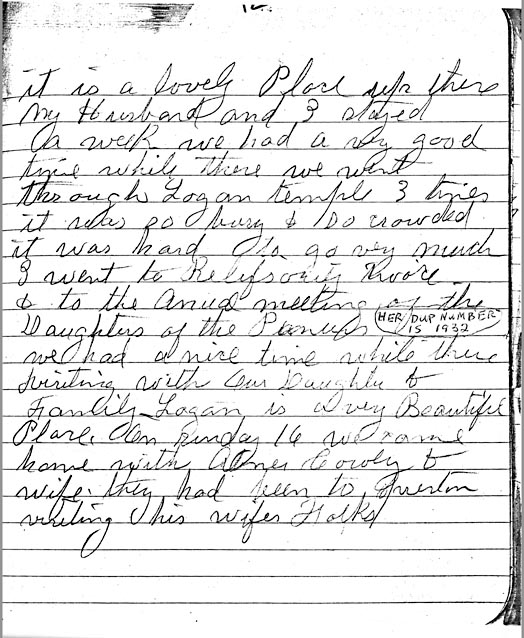 12
it is a lovely Place up there
My Husband and I stayed
a week we had a vry good
time while there we went
through Logan temple 3 times
it was so busy & so crowded
it was hard to go vry much
I went to Reliefsociety twice
& to the Anual meeting of the
Daughters of the Pioneers (HER DUP NUMBER IS 1932)
we had a nice time while there
visiting with Our Daughter &
Family Logan is a vry Beautiful
Place. On Sunday 16 we came
home with Cowly &
wife. they had been to
visiting his wifes Folks